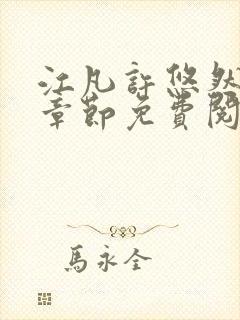 江凡許悠然
章節免費閱
馬永全